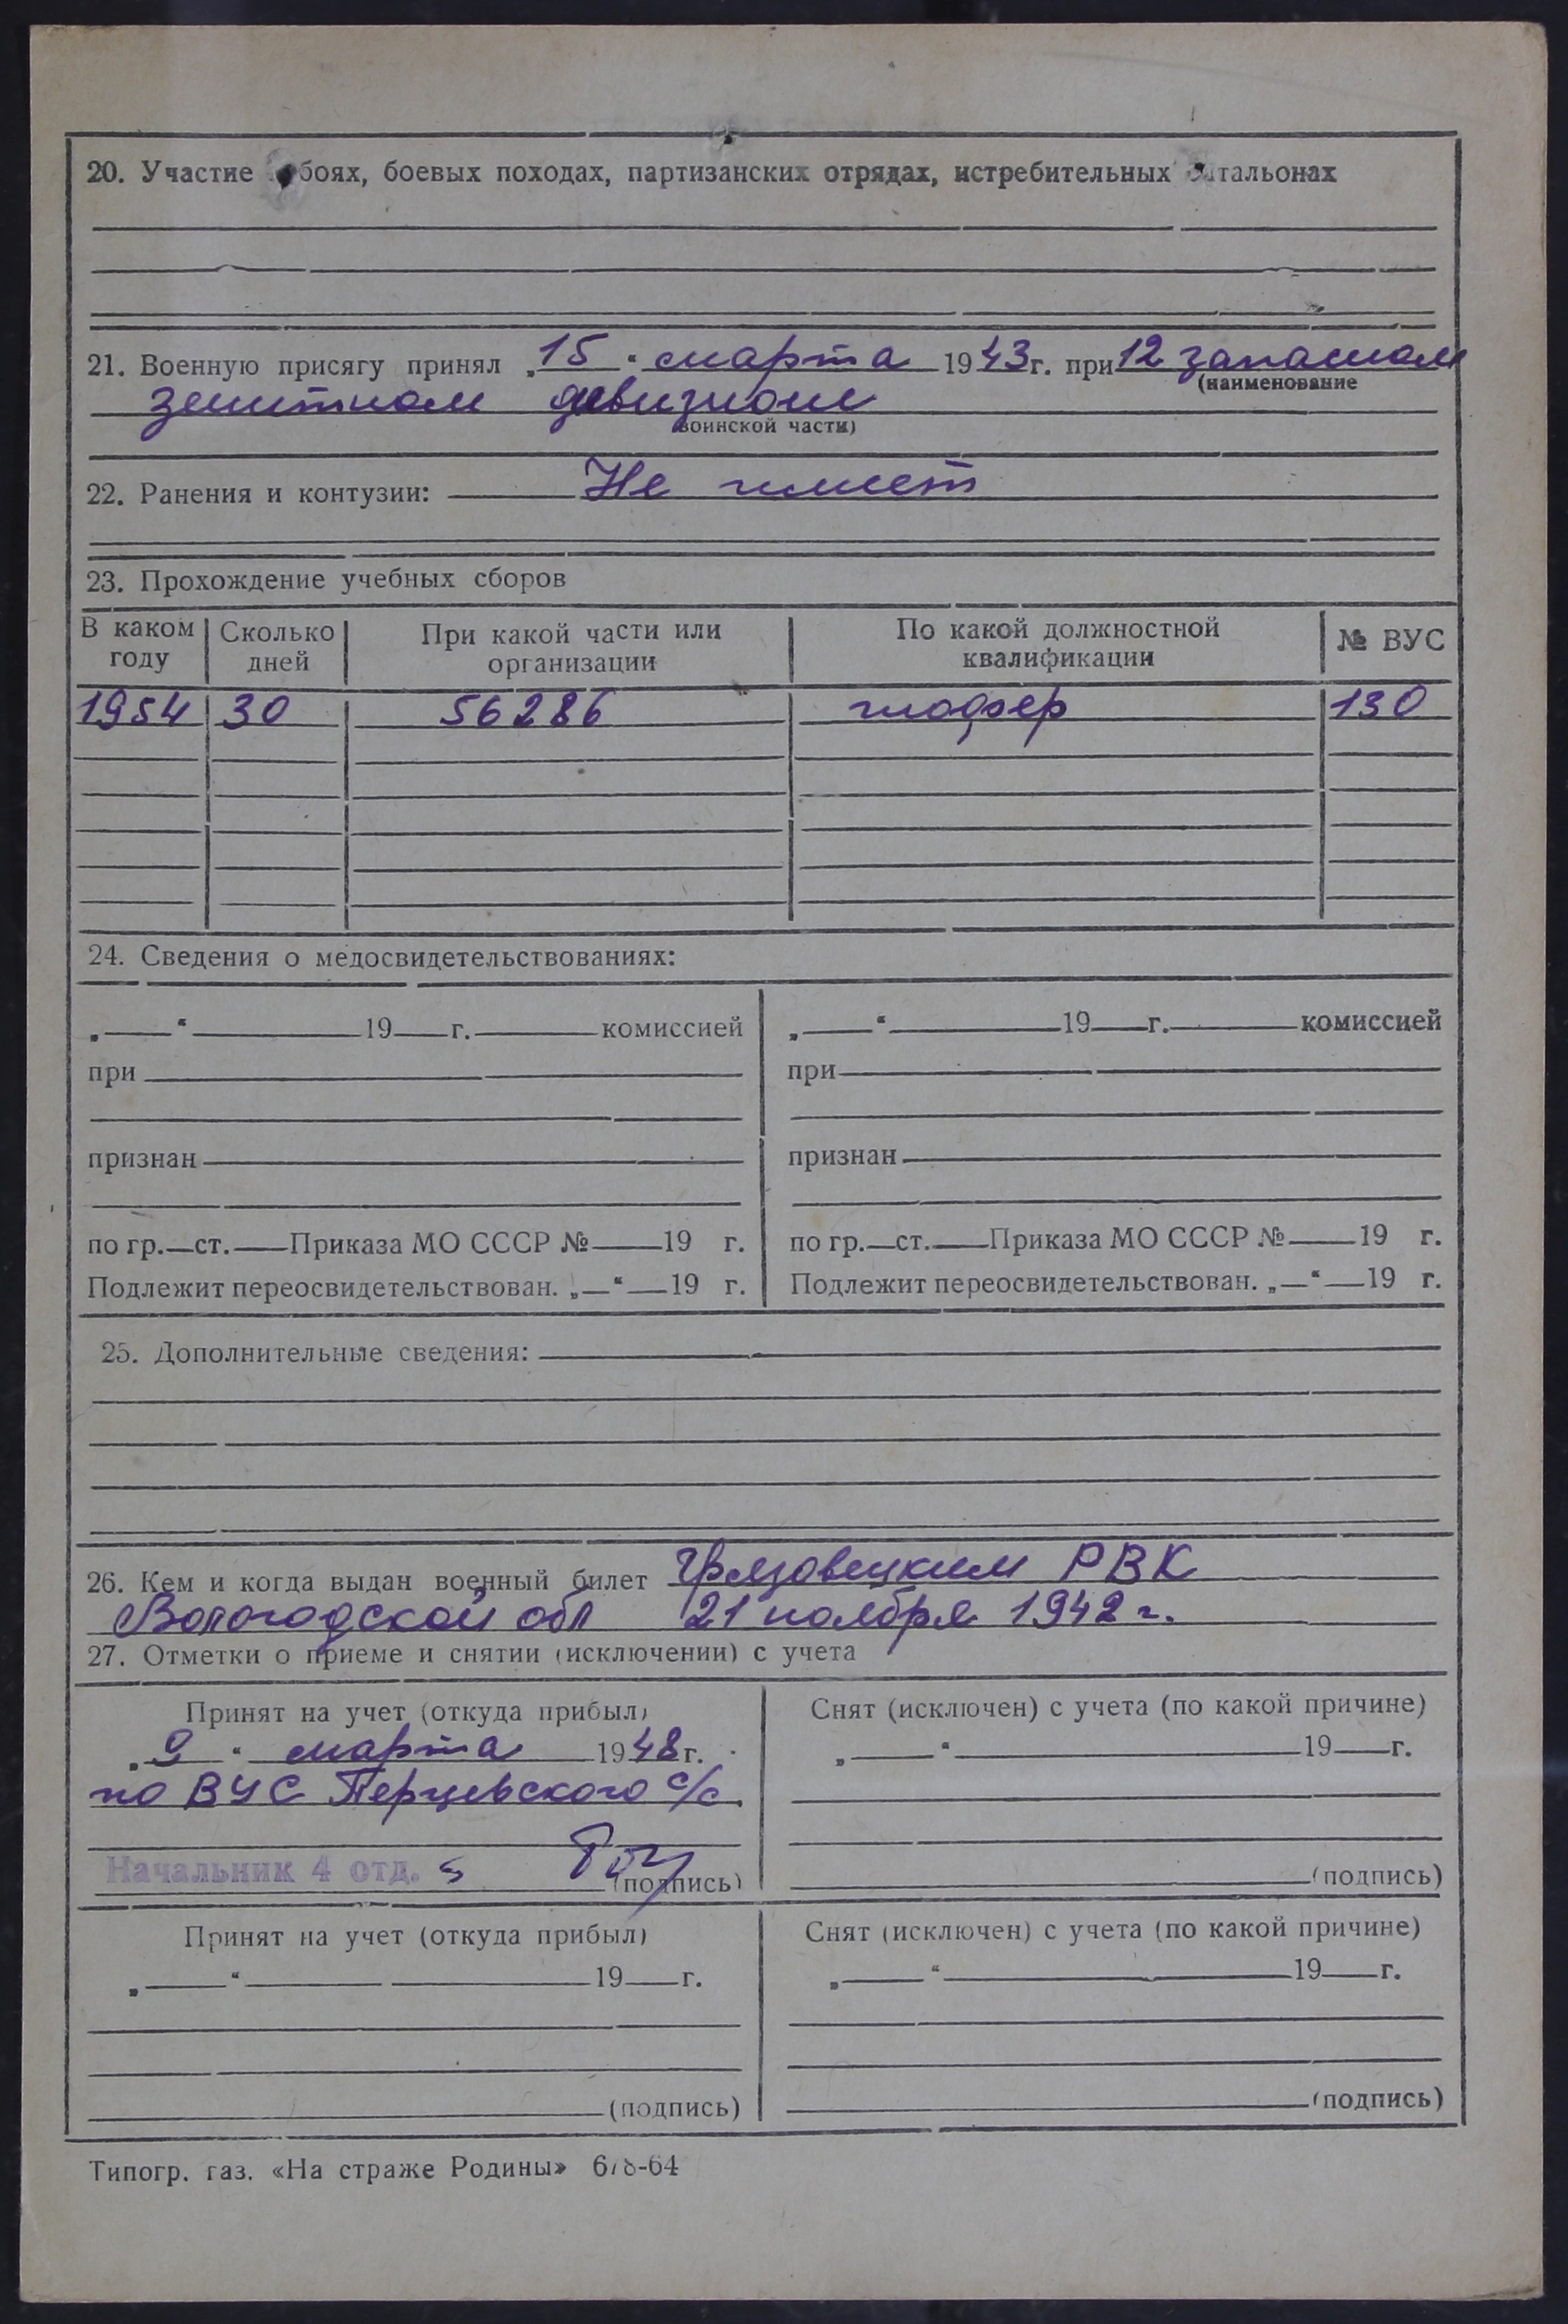 20. Участие боях, боевых походах, партизанских отрядах, истребительных тальонах
21. Военную присягу принял „15“ марта 1943 г. при 12 запасном
(наименование
зенитном дивизионе
воинской части)
22. Ранения и контузии: Не имеет
23. Прохождение учебных сборов
В каком году Сколько дней При какой части или организации По какой должностной квалификации № ВУС
1954 30 56286 шофер 130
24. Сведения о медосвидетельствованиях:
„ “ 19 г. комиссией „ “ 19 г. комиссией
при при
признан признан
по гр. ст. Приказа МО СССР № 19 г. по гр. ст. Приказа МО СССР № 19 г.
Подлежит переосвидетельствован. „ “ 19 г. Подлежит переосвидетельствован. „ “ 19 г.
25. Дополнительные сведения:
26. Кем и когда выдан военный билет Грязовецким РВК
Вологодской обл 21 ноября 1942 г.
27. Отметки о приеме и снятии (исключении) с учета
Принят на учет (откуда прибыл) Снят (исключен) с учета (по какой причине)
„9“ марта 1948 г. „ “ 19 г.
по ВУС Перцевского с/с.
Начальник 4 отд. (подпись) (подпись)
Принят на учет (откуда прибыл) Снят (исключен) с учета (по какой причине)
„ “ 19 г. „ “ 19 г.
(подпись) (подпись)
Типогр. газ. «На страже Родины»